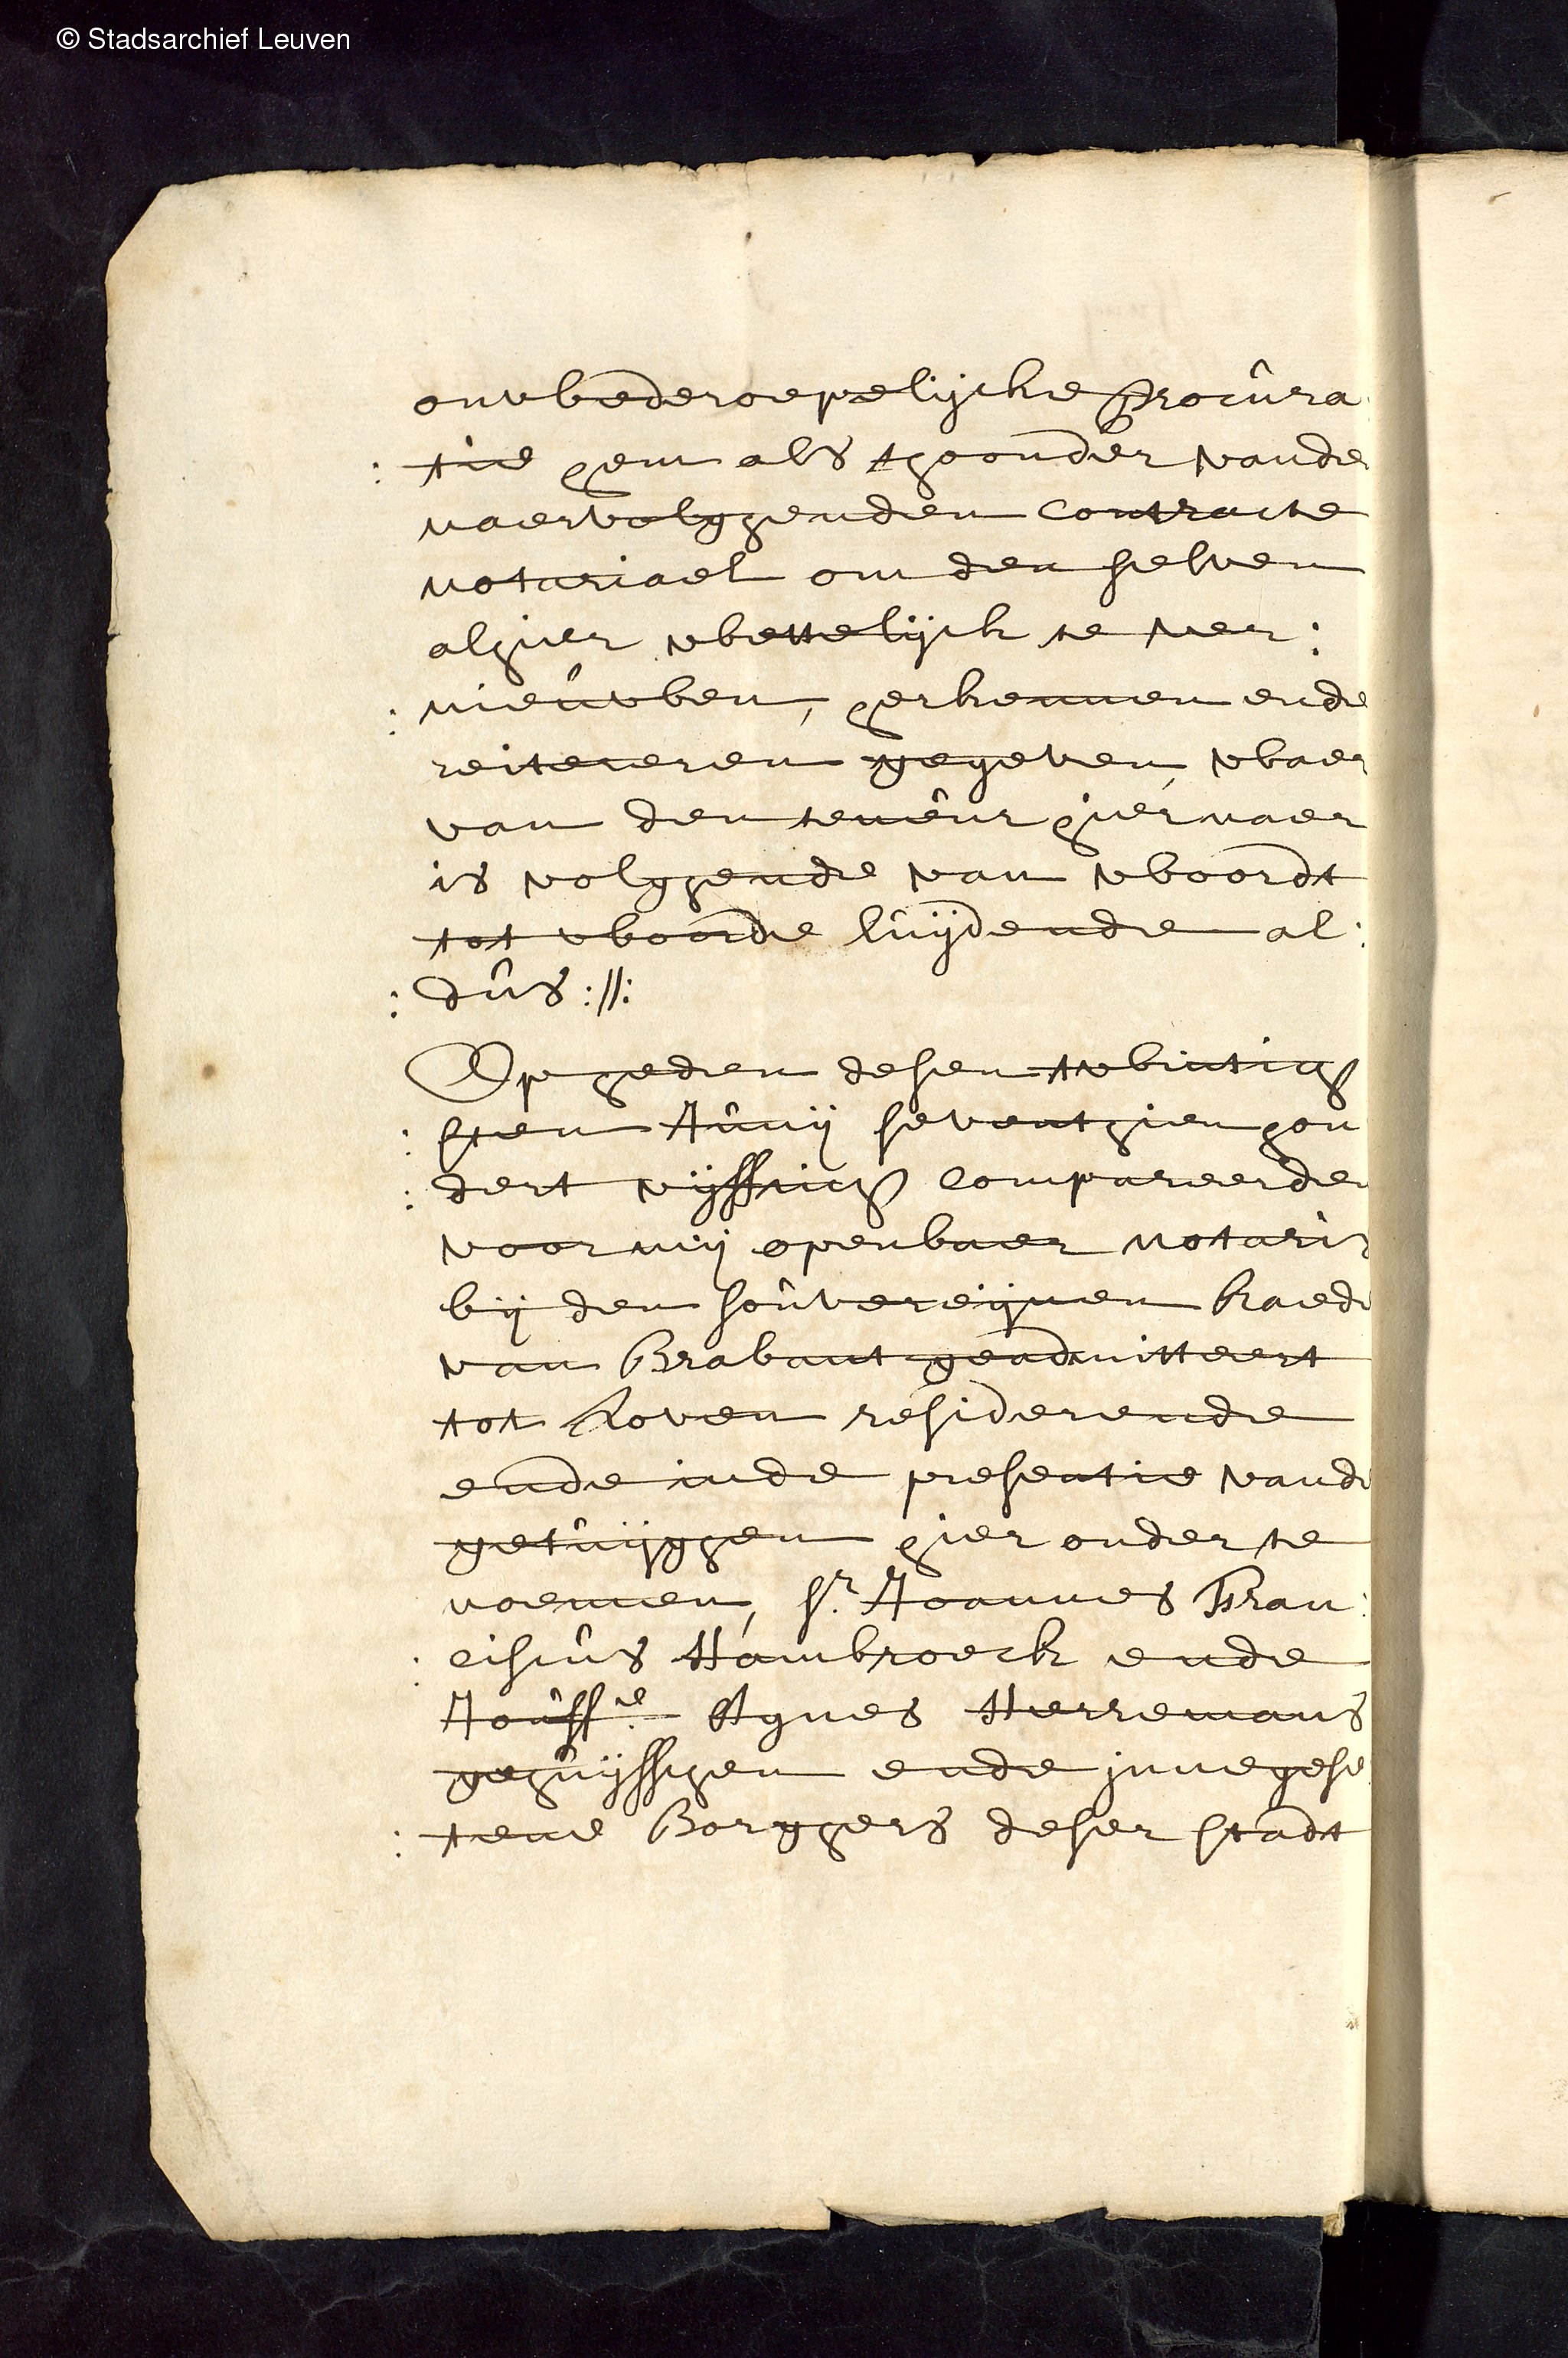 © Stadsarchief Leuven
onwederoepelijcke procura
: tie hem als thoonder vande
naervolghenden Contracte
notariael om den selven
alhier wettelijck te ver:
: nieuwen, herkennen ende
reitereren gegeven, waer
van den teneur hier naer
is volghende van woordt
tot woorde luijdende al:
: dus ://:
Op heden desen twintich
: sten Junij seventhien hon
: dert vijftich Compareerden
voor mij openbaer notaris
bij den souvereijnen Raede
van Brabant geadmitteert
tot Loven residerende
ende inde presentie vande
getuijghen hier onder te
noemen, sr. Joannes Fran:
: ciscus Hambroeck ende
Jouffe. Agnes Herremans
gehuijsschen ende innegese
: tene Borghers deser stadt